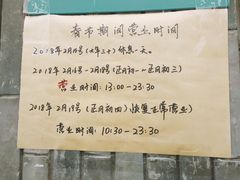 春节期间营业时间
2018年2月15号(大年三十)休息一天。
2018年2月16号-2月18号(正月初一~正月初三)
营业时间:13:00-23:30
2018年2月19号(正月初四)恢复正常营业)
营业时间:10:30-23:30